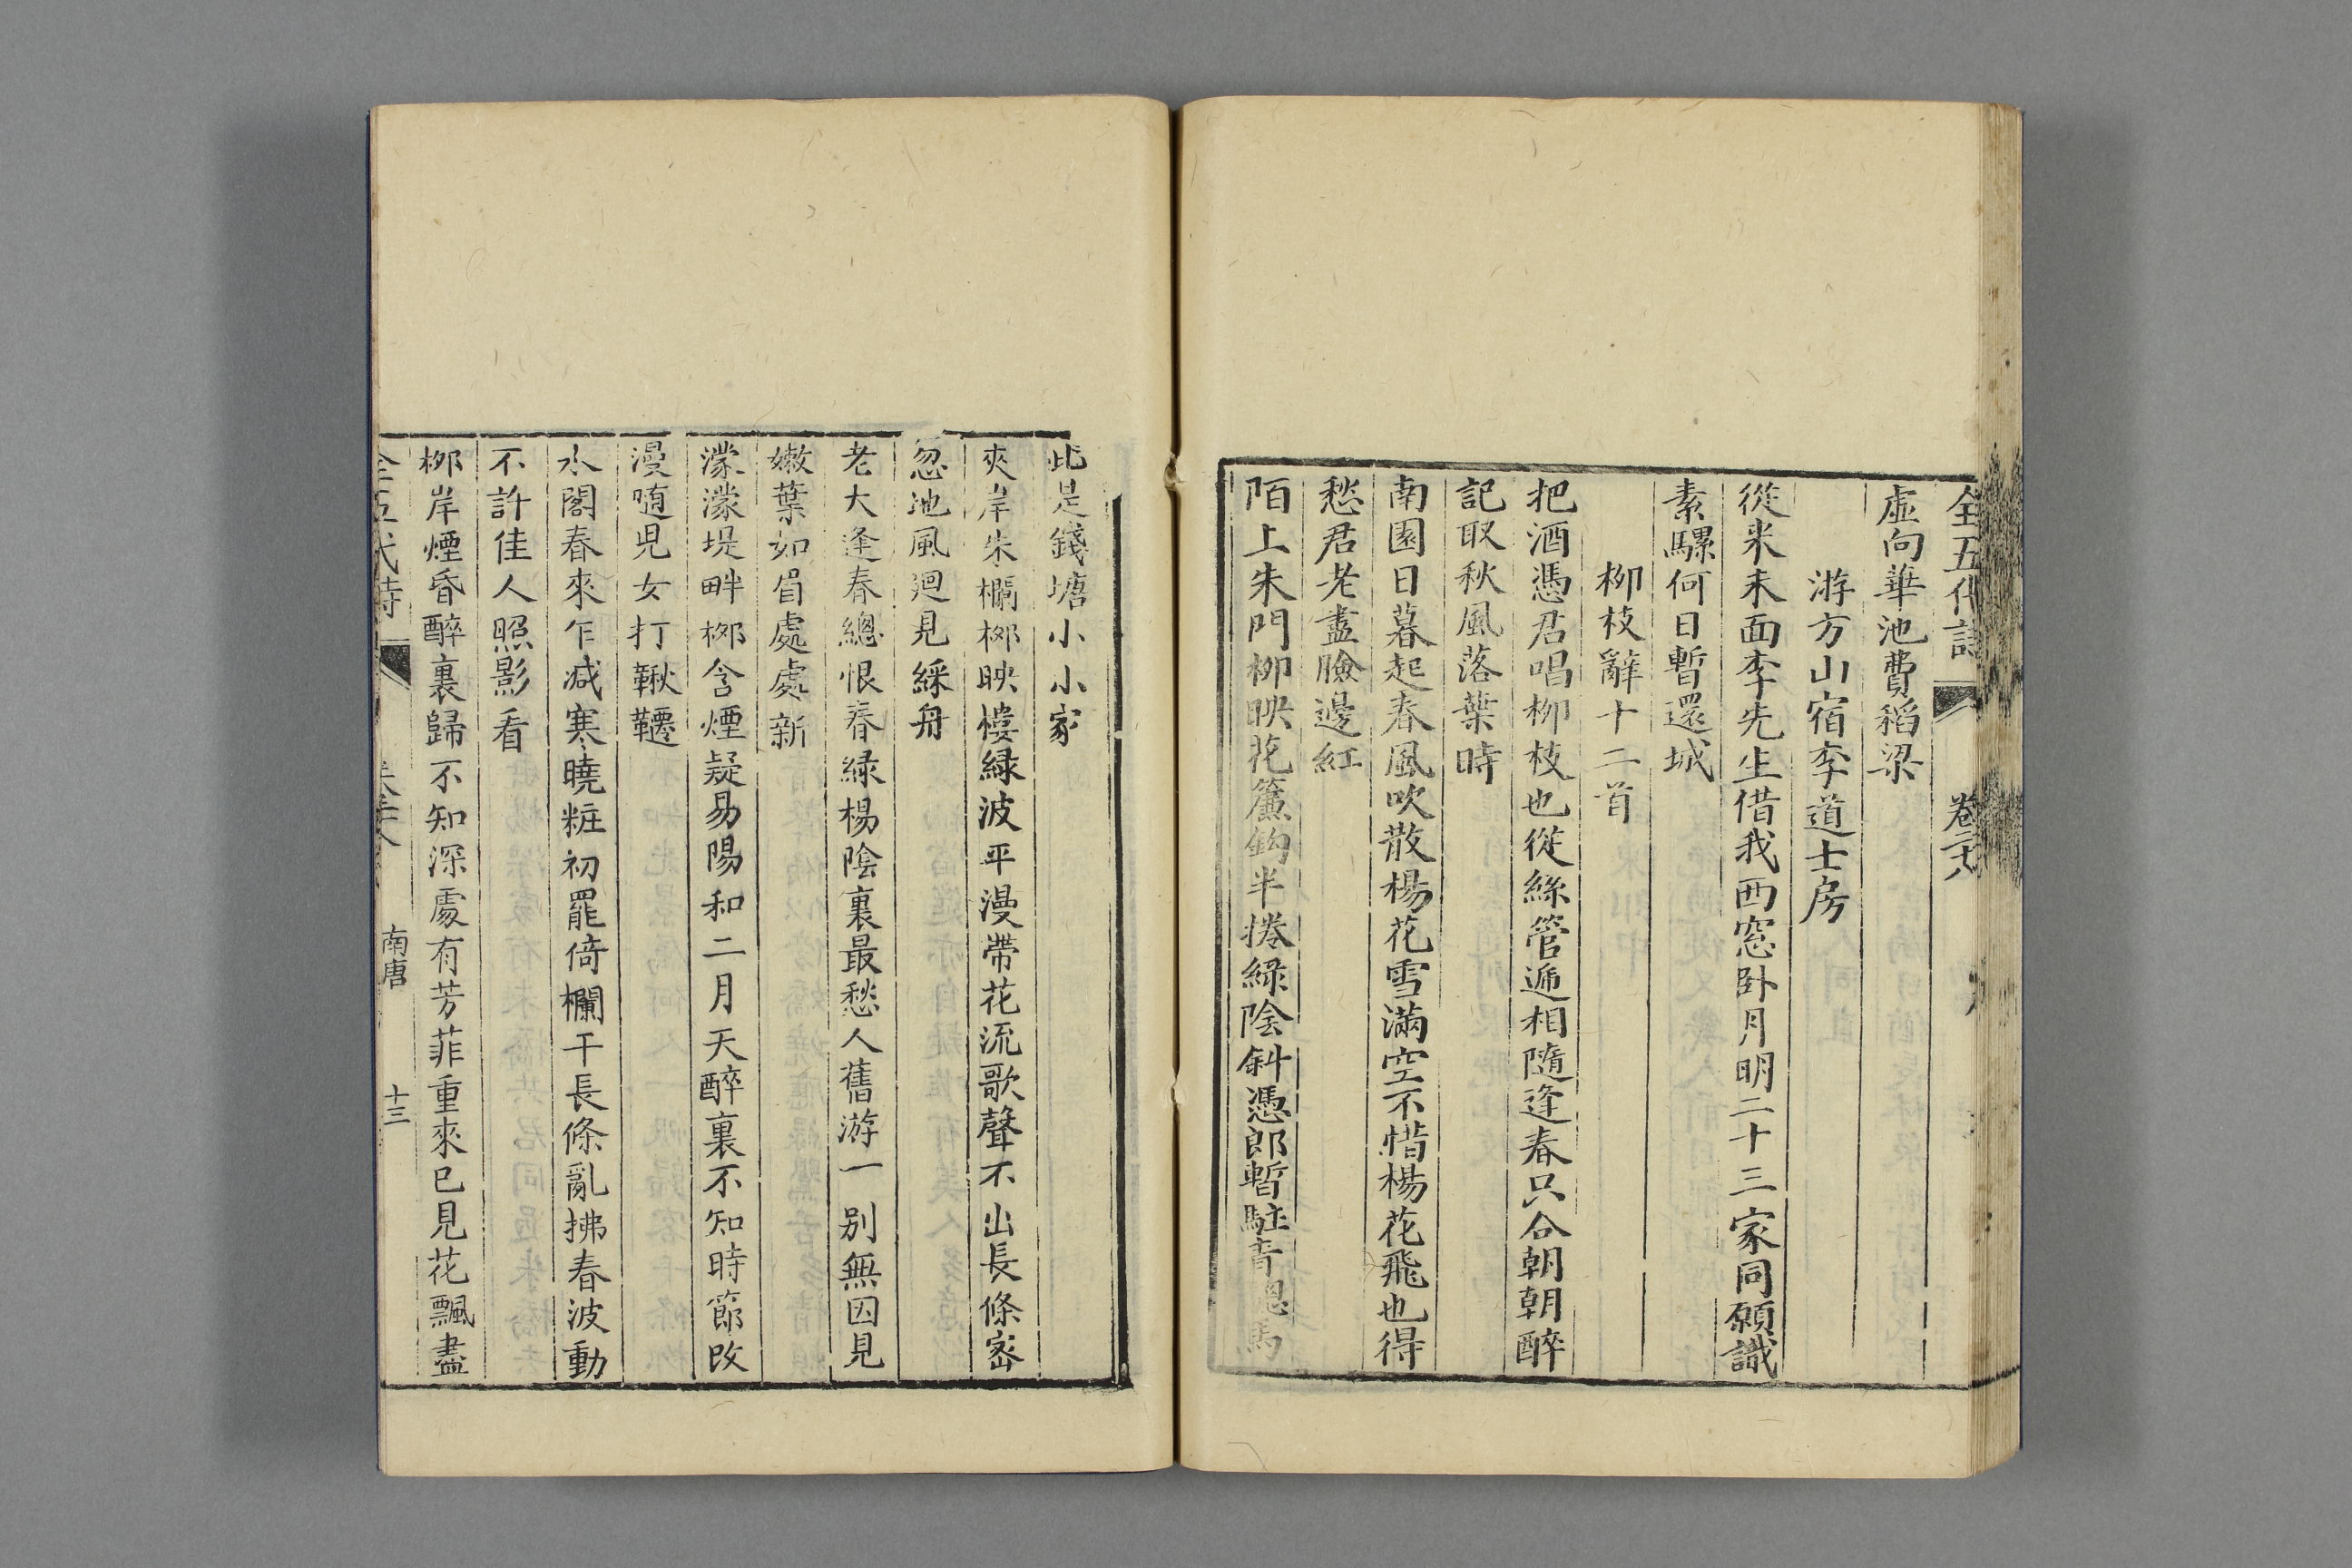 全五代詩
虛向華池費稻梁
游方山宿李道士房
從来未面李先生借我西窓卧月明二十三家同願識
素騾何日暫還城
柳枝辭十二首
把酒憑君唱柳枝也從絲管遞相隨逢春只合朝朝醉
記取秋風落葉時
南園日暮起春風吹散楊花雪滿空不惜楊花飛也得
愁君老盡臉邊紅
陌上朱門柳映花簾鈎半捲綠陰斜憑郎暫駐青驄馬
此是錢塘小小家
夾岸朱欄柳映樓緑波平漫帶花流歌聲不出長條密
忽地風廻見綵舟
老大逢春總恨春緑楊陰裏最愁人舊游一別無因見
嫩葉如眉處處新
濛濛堤畔柳含煙疑易陽和二月天醉裏不知時節改
漫隨兒女打鞦韆
水閣春來乍減寒曉粧初罷倚欄干長條亂拂春波動
不許佳人照影看
柳岸煙昏醉裏歸不知深處有芳菲重來已見花飄盡
全五代詩
南唐
十三